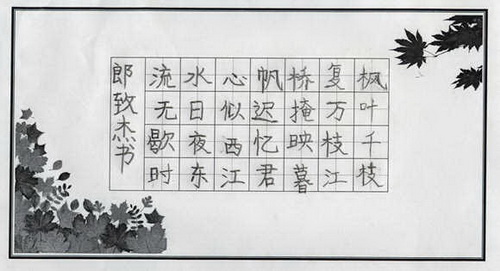 枫叶千枝
复万枝江
桥掩映暮
帆迟忆君
心似西江
水日夜东
流无歇时
郎致杰书